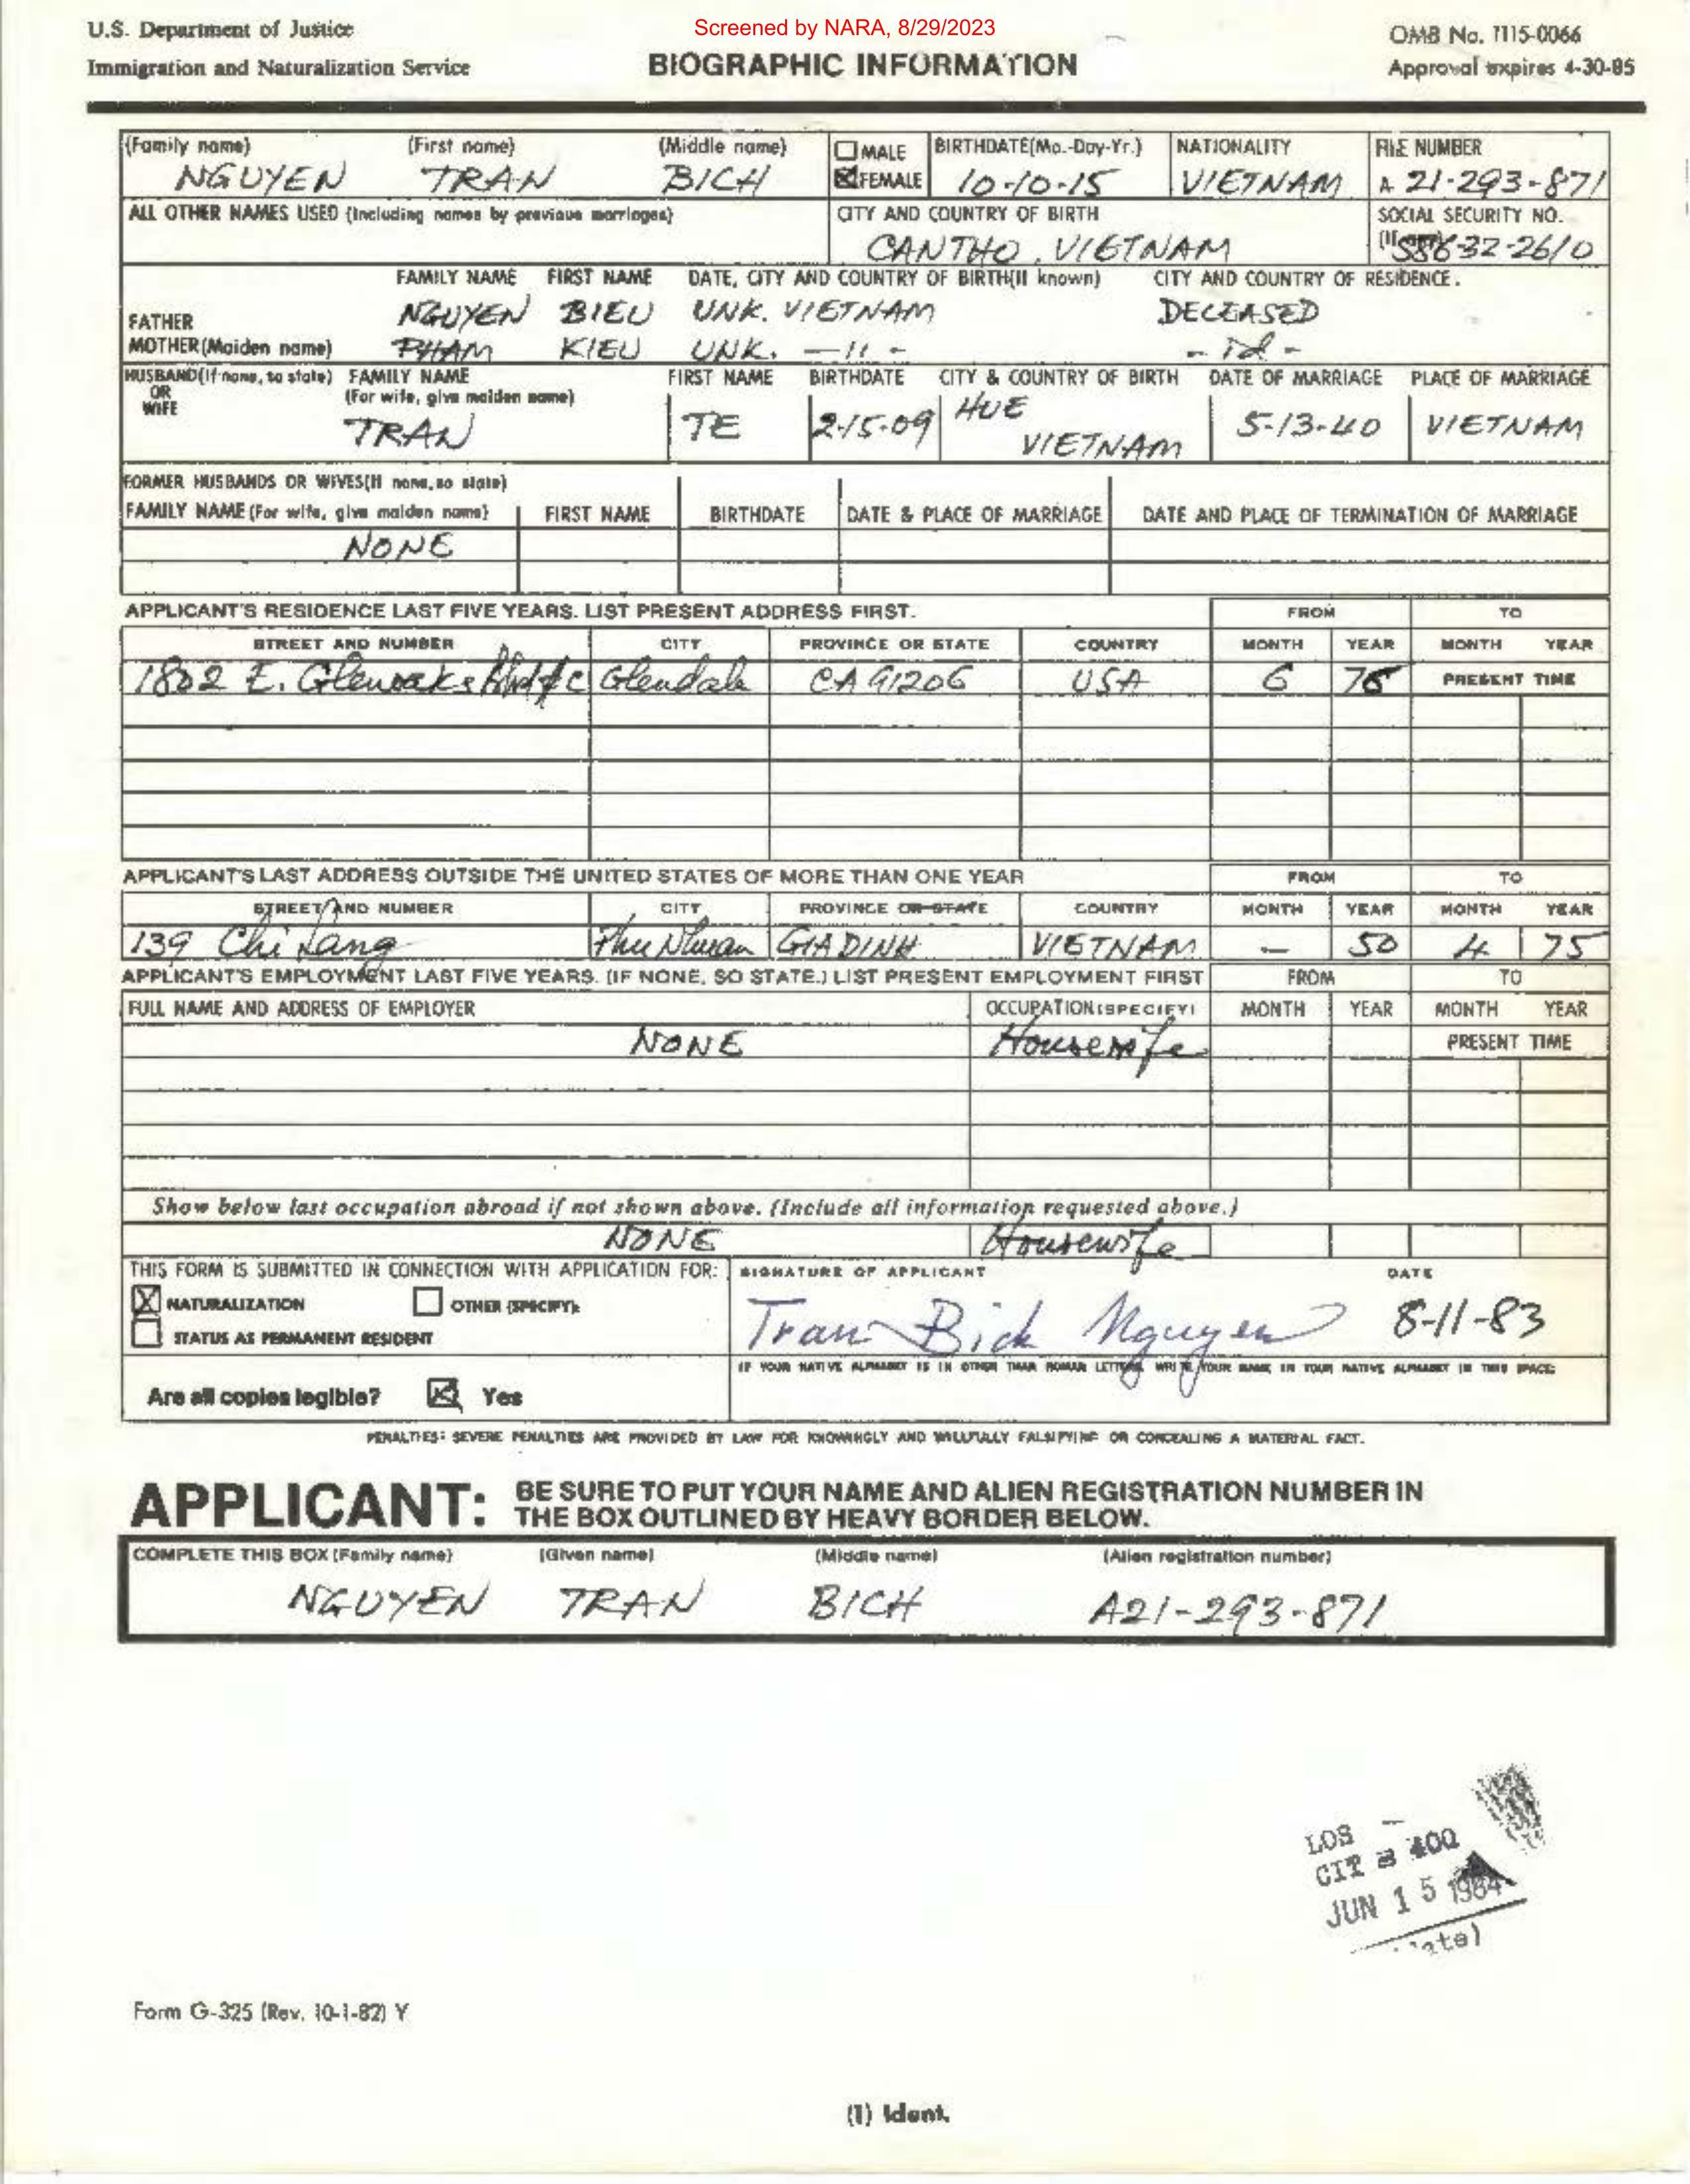 Screened by NARA, 8/29/2023
U.S. Department of Justice
Immigration and Naturalization Service
BIOGRAPHIC INFORMATION
OMB No. 1115-0066
Approval expires 4-30-85
(Family name) (First name) (Middle name) MALE BIRTHDATE(Mo.-Day-Yr.) NATIONALITY FILE NUMBER
NGUYEN TRAN BICH FEMALE 10-10-15 VIETNAM A 21-293-871
ALL OTHER NAMES USED (Including names by previous marriages) CITY AND COUNTRY OF BIRTH SOCIAL SECURITY NO.
CANTHO, VIETNAM (If any) 32-2610
FAMILY NAME FIRST NAME DATE, CITY AND COUNTRY OF BIRTH(If known) CITY AND COUNTRY OF RESIDENCE.
FATHER NGUYEN BIEU UNK. VIETNAM DECEASED
MOTHER(Maiden name) PHAM KIEU UNK. -11- - id -
HUSBAND(If none, so state) FAMILY NAME FIRST NAME BIRTHDATE CITY & COUNTRY OF BIRTH DATE OF MARRIAGE PLACE OF MARRIAGE
OR (For wife, give maiden name)
WIFE
TRAN TE 2-15-09 HUE VIETNAM 5-13-40 VIETNAM
FORMER HUSBANDS OR WIVES(If none, so state)
FAMILY NAME (For wife, give maiden name) FIRST NAME BIRTHDATE DATE & PLACE OF MARRIAGE DATE AND PLACE OF TERMINATION OF MARRIAGE
NONE
APPLICANT'S RESIDENCE LAST FIVE YEARS. LIST PRESENT ADDRESS FIRST. FROM TO
STREET AND NUMBER CITY PROVINCE OR STATE COUNTRY MONTH YEAR MONTH YEAR
1802 E. Glenoaks Blvd #C Glendale CA 91206 USA 6 PRESENT TIME
APPLICANT'S LAST ADDRESS OUTSIDE THE UNITED STATES OF MORE THAN ONE YEAR FROM TO
STREET AND NUMBER CITY PROVINCE OR STATE COUNTRY MONTH YEAR MONTH YEAR
139 Chi Lang Phu Nhuan GIADINH VIETNAM - 50 4 75
APPLICANT'S EMPLOYMENT LAST FIVE YEARS. (IF NONE, SO STATE.) LIST PRESENT EMPLOYMENT FIRST FROM TO
FULL NAME AND ADDRESS OF EMPLOYER OCCUPATION (SPECIFY) MONTH YEAR MONTH YEAR
NONE Housewife PRESENT TIME
Show below last occupation abroad if not shown above. (Include all information requested above.)
NONE Housewife
THIS FORM IS SUBMITTED IN CONNECTION WITH APPLICATION FOR: SIGNATURE OF APPLICANT DATE
X NATURALIZATION OTHER (SPECIFY):
STATUS AS PERMANENT RESIDENT
Tran Bich Nguyen 8-11-83
IF YOUR NATIVE ALPHABET IS IN OTHER THAN ROMAN LETTERS, WRITE YOUR NAME IN YOUR NATIVE ALPHABET IN THIS SPACE:
Are all copies legible? Yes
PENALTIES: SEVERE PENALTIES ARE PROVIDED BY LAW FOR KNOWINGLY AND WILLFULLY FALSIFYING OR CONCEALING A MATERIAL FACT.
APPLICANT: BE SURE TO PUT YOUR NAME AND ALIEN REGISTRATION NUMBER IN
THE BOX OUTLINED BY HEAVY BORDER BELOW.
COMPLETE THIS BOX (Family name) (Given name) (Middle name) (Alien registration number)
NGUYEN TRAN BICH A21-293-871
LOS
CIT 400
JUN 15 1984
Form G-325 (Rev. 10-1-82) Y
(1) Ident.